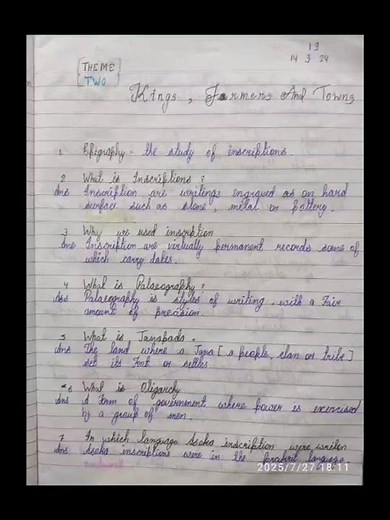 13
14 3 24
THEME
TWO
Kings, Farmers And Towns
1 Epigraphy - the study of inscriptions.
2 What is Inscriptions?
Ans Inscription are writings engraved as on hard
surface such as stone, metal or pottery.
3 Why are used inscription
Ans Inscription are virtually permanent records some of
which carry dates.
4 What is Palaeography?
Ans Palaeography is styles of writing with a Fair
amount of precision
5 What is Janapada.
Ans The land where a Jana [a people, clan or tribe]
set its Foot or settles
6 What is Oligarchy
Ans A Form of government where power is exercised
by a group of men.
7 In which language Asoka inscription were written
Ans Asoka inscriptions were in the prakrit language
2025/7/27 18:11